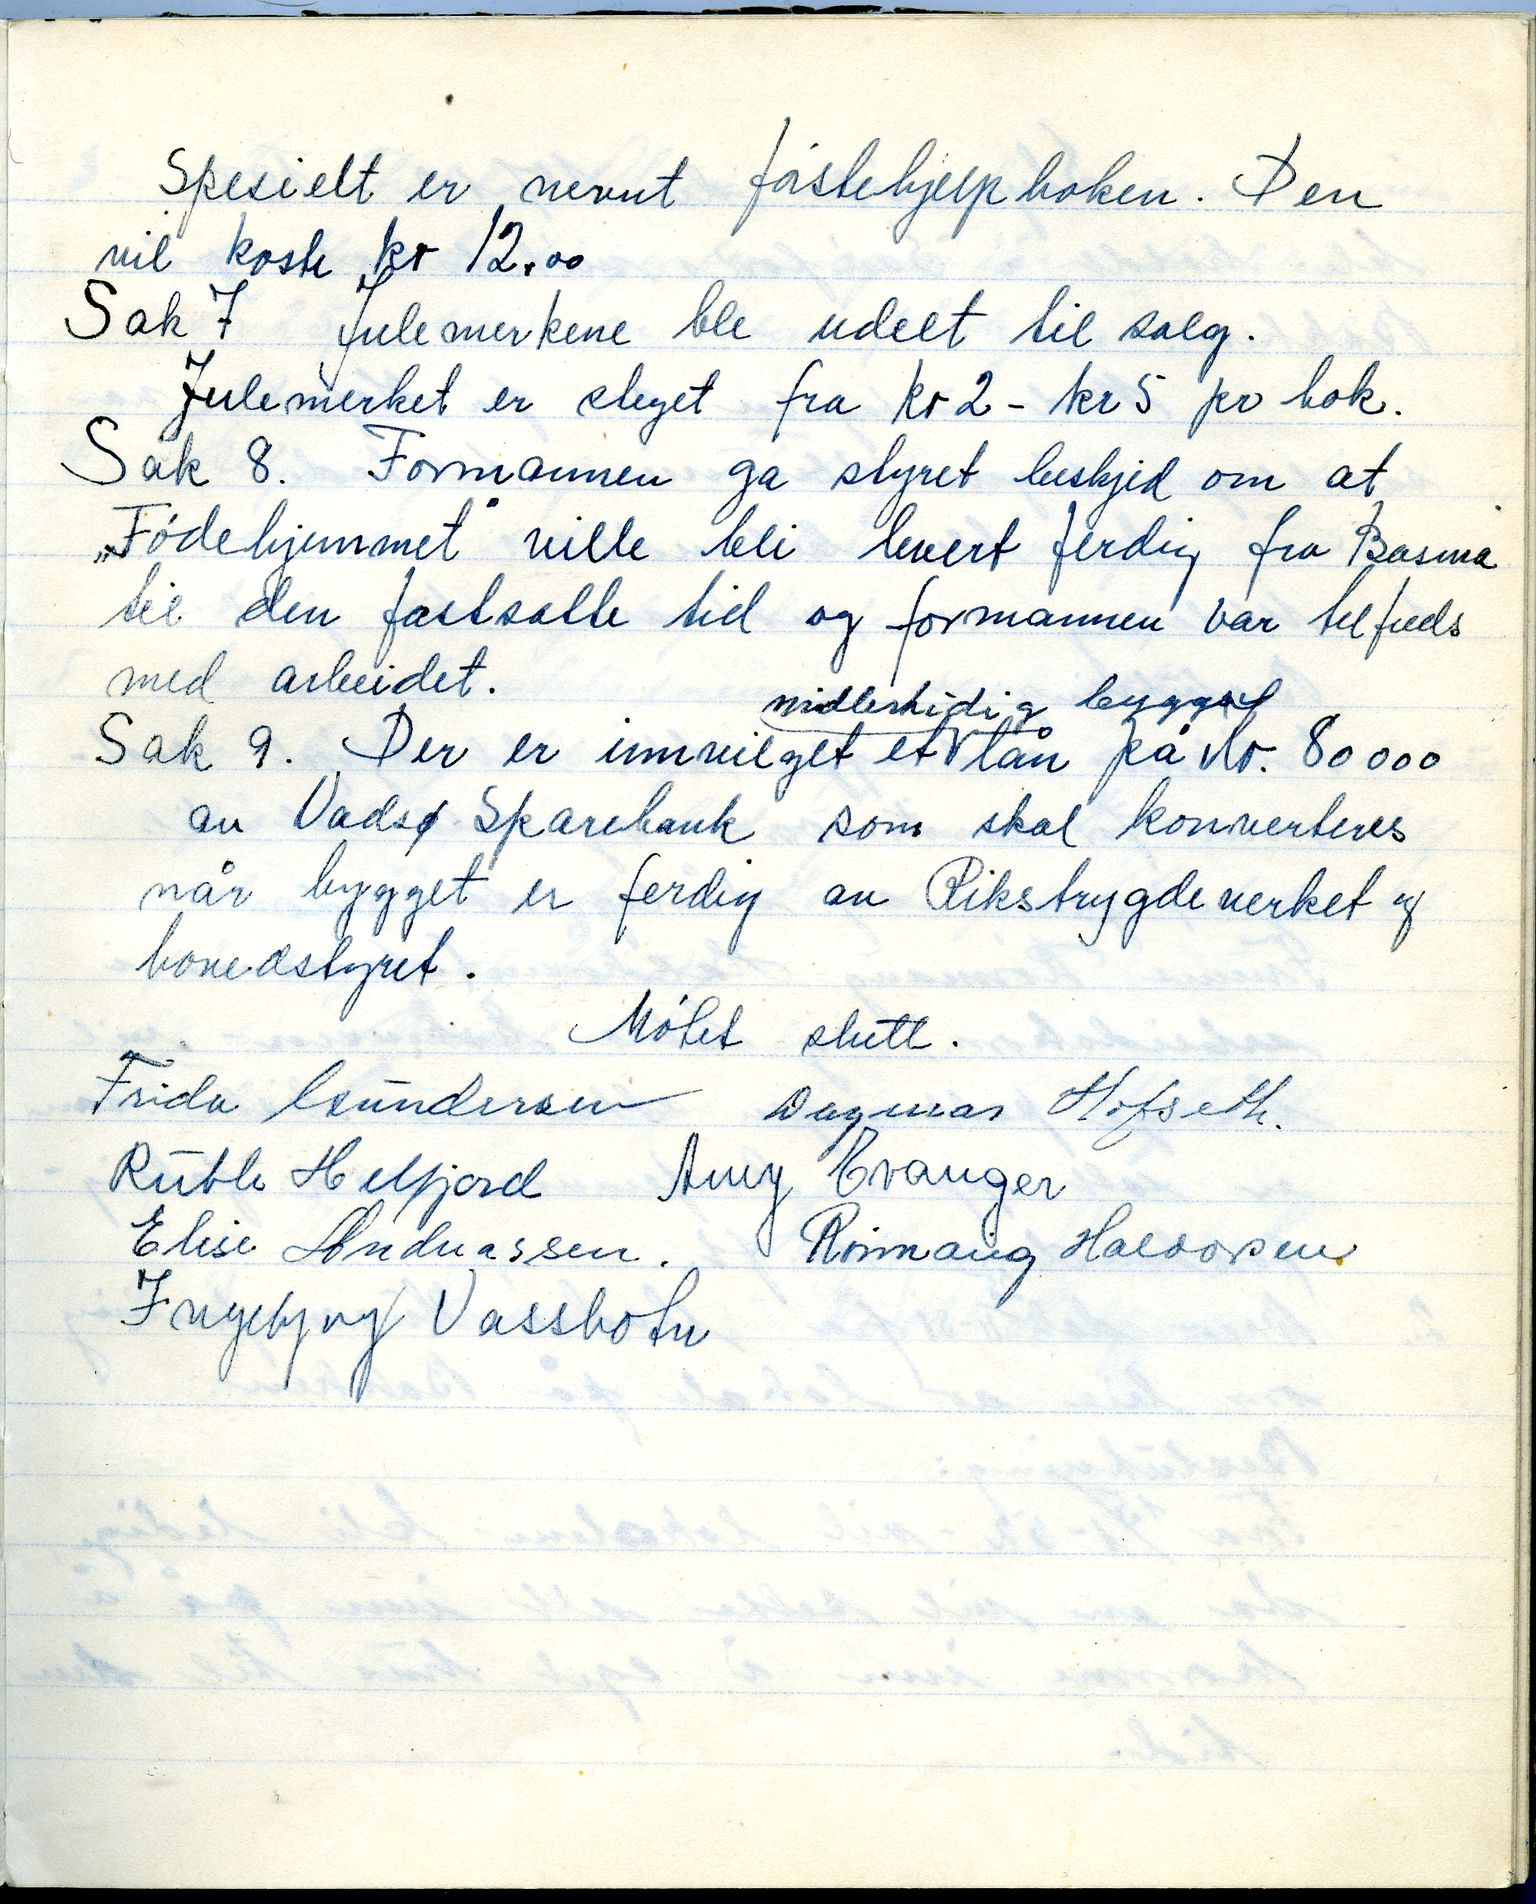 Spesielt er nevnt førstehjelpboken. Den
vil koste kr 12.00
Sak 7 Julemerkene ble udelt til salg.
Julemerket er steget fra kr 2 - kr 5 pr bok.
Sak 8. Formannen ga styret beskjed om at
"Fødehjemmet" ville bli levert ferdig fra Basma
til den fastsatte tid og formannen var tilfreds
med arbeidet.
midlertidig bygge
Sak 9. Der er innvilget et lån på kr. 80000
av Vadsø Sparebank som skal konverteres
når bygget er ferdig av Rikstrygdeverket og
hovedstyret.
Møtet slutt.
Frida Gundersen Dagmar Hofseth.
Ruth Helfjord Amy Evanger
Elise Andreassen. Rønnaug Halvorsen
Ingebjørg Vassbotn